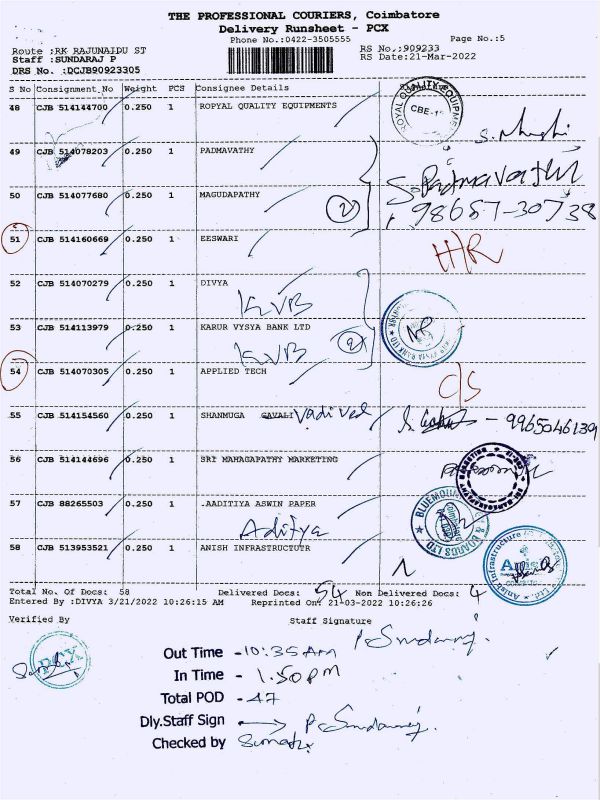 THE PROFESSIONAL COURIERS, Coimbatore
Delivery Runsheet - PCX
Phone No.:0422-3505555 Page No.:5
Route :RK RAJUNAIDU ST RS No.:909233
Staff :SUNDARAJ P RS Date:21-Mar-2022
DRS No. :DCJB90923305
S No Consignment No Weight PCS Consignee Details
48 CJB 514144700 0.250 1 ROPYAL QUALITY EQUIPMENTS
ROYAL QUALITY EQUIPMENTS
CBE-1
49 CJB 514078203 0.250 1 PADMAVATHY
S. Padmavathi
50 CJB 514077680 0.250 1 MAGUDAPATHY
2
98657-30738
51 CJB 514160669 0.250 1 EESWARI
H/R
52 CJB 514070279 0.250 1 DIVYA
KVB
53 CJB 514113979 0.250 1 KARUR VYSYA BANK LTD
KVB
2
54 CJB 514070305 0.250 1 APPLIED TECH
C/S
55 CJB 514154560 0.250 1 SHANMUGA GAVALI Vadivel
- 9965046139
56 CJB 514144696 0.250 1 SRI MAHAGAPATHY MARKETING
57 CJB 88265503 0.250 1 .AADITIYA ASWIN PAPER
Aditya
& BOARDS LTD
58 CJB 513953521 0.250 1 ANISH INFRASTRUCTUTR
Total No. Of Docs: 58 Delivered Docs: 54 Non Delivered Docs: 4
Entered By :DIVYA 3/21/2022 10:26:15 AM Reprinted On: 21-03-2022 10:26:26
Verified By Staff Signature
P. Sundaraj.
PCX
Out Time - 10:35 AM
In Time - 1.50 PM
Total POD - 47
Dly.Staff Sign P. Sundaraj.
Checked by Sumathi